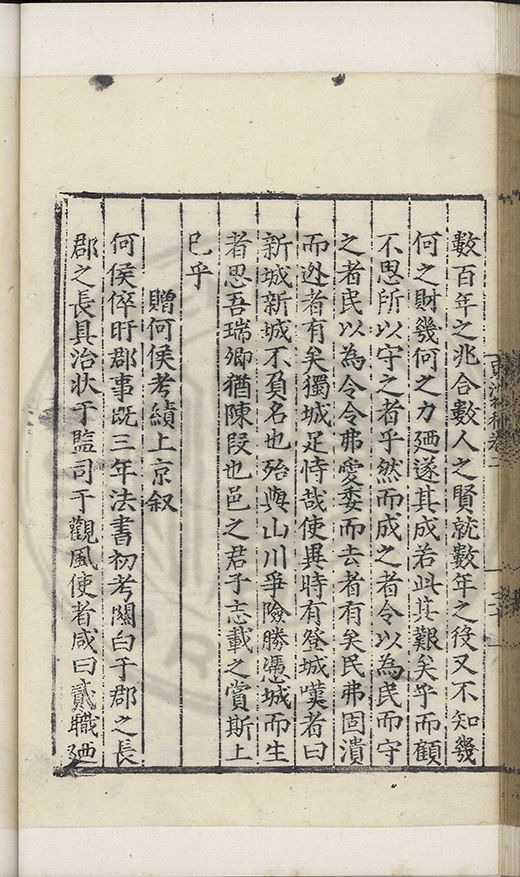 數百年之兆合數人之賢就數年之役又不知幾
何之財幾何之力廼遂其成若此其艱矣乎而顧
不思所以守之者乎然而成之者令以為民而守
之者民以為令令弗愛委而去者有矣民弗固潰
而迯者有矣獨城足恃哉使異時有登城嘆者曰
新城新城不負名也殆與山川爭險勝憑城而生
者思吾瑞卿猶陳段也邑之君子志載之賞斯上
已乎
贈何侯考績上京叙
何侯倅盱郡事既三年法書初考關白于郡之長
郡之長具治狀于監司于觀風使者咸曰貳職廼